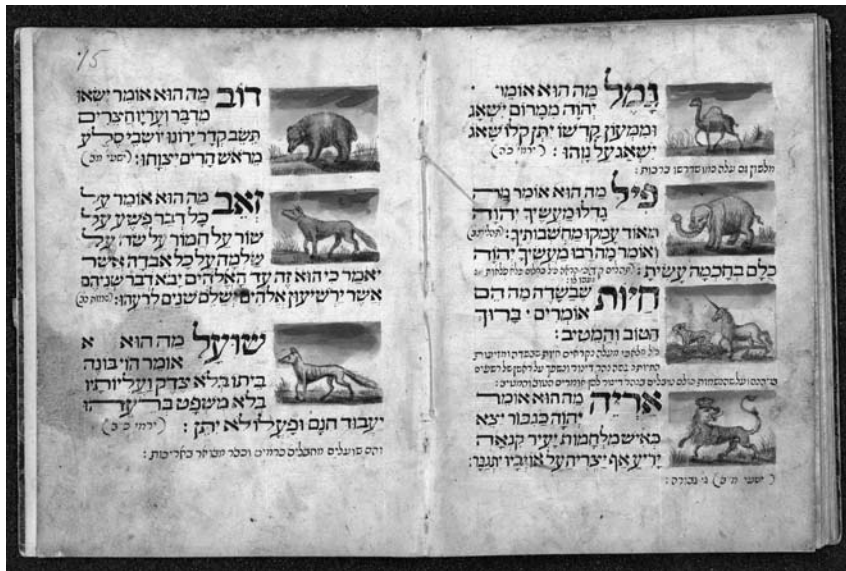 גָּמָל מה הוא אומר
יְהוָה מִמָּרוֹם יִשְׁאָג
וּמִמְּעוֹן קָדְשׁוֹ יִתֵּן קֹלוֹ שָׁאֹג
יִשְׁאַג עַל נָוֵהוּ : (ירמי׳ כה)
פִּיל מה הוא אומר מַה
גָּדְלוּ מַעֲשֶׂיךָ יְהוָה
מְאוֹד עָמְקוּ מַחְשְׁבוֹתֶיךָ :
ואומר מָה רַבּוּ מַעֲשֶׂיךָ יְהוָה
כֻּלָּם בְּחָכְמָה עָשִׂיתָ :
חַיּוֹת שבשדה מה הם
אומרים ׳ ברוך
הטוב והמטיב :
אַרְיֵה מה הוא אומר
יְהוָה כַּגִּבּוֹר יֵצֵא
כְּאִישׁ מִלְחָמוֹת יָעִיר קִנְאָה
יָרִיעַ אַף יַצְרִיחַ עַל אוֹיְבָיו יִתְגַּבָּר :
15
דּוֹב מה הוא אומר יִשְׂאוּ
מִדְבָּר וְעָרָיו חֲצֵרִים
תֵּשֵׁב קֵדָר יָרוֹנּוּ יוֹשְׁבֵי סֶלַע
מֵרֹאשׁ הָרִים יִצְוָחוּ : (ישעי׳ מב)
זְאֵב מה הוא אומר עַל
כָּל דְּבַר פֶּשַׁע עַל
שׁוֹר עַל חֲמוֹר עַל שֶׂה עַל
שַׂלְמָה עַל כָּל אֲבֵדָה אֲשֶׁר
יֹאמַר כִּי הוּא זֶה עַד הָאֱלֹהִים יָבֹא דְּבַר שְׁנֵיהֶם
אֲשֶׁר יַרְשִׁיעוּן אֱלֹהִים יְשַׁלֵּם שְׁנַיִם לְרֵעֵהוּ :
שׁוּעָל מה הוא א
אומר הוֹי בּוֹנֶה
בֵיתוֹ בְּלֹא צֶדֶק וַעֲלִיּוֹתָיו
בְּלֹא מִשְׁפָּט בְּרֵעֵהוּ
יַעֲבוֹד חִנָּם וּפָעֳלוֹ לֹא יִתֵּן : (ירמי׳ כב)